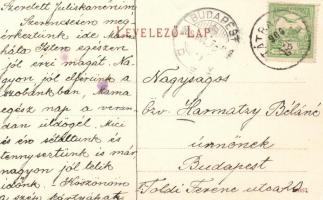 Szeretett Juliskanénim
Szerencsésen meg
érkeztünk ide
hála Isten egészen
jól érzi magát. Na-
gyon jól elférünk a
szobánkban. Mama
egész nap a veran-
dán üldögel. Mici
és én sétáltunk és
tenniszertünk is már
nagyon jól telik
időnk. Köszönöm
a szép kártyákat
LEVELEZŐ-LAP.
BUDAPEST
TÁTRA
Nagyságos
özv. Harmatzy Béláné
úrnőnek
Budapest
Toldi Ferenc utca